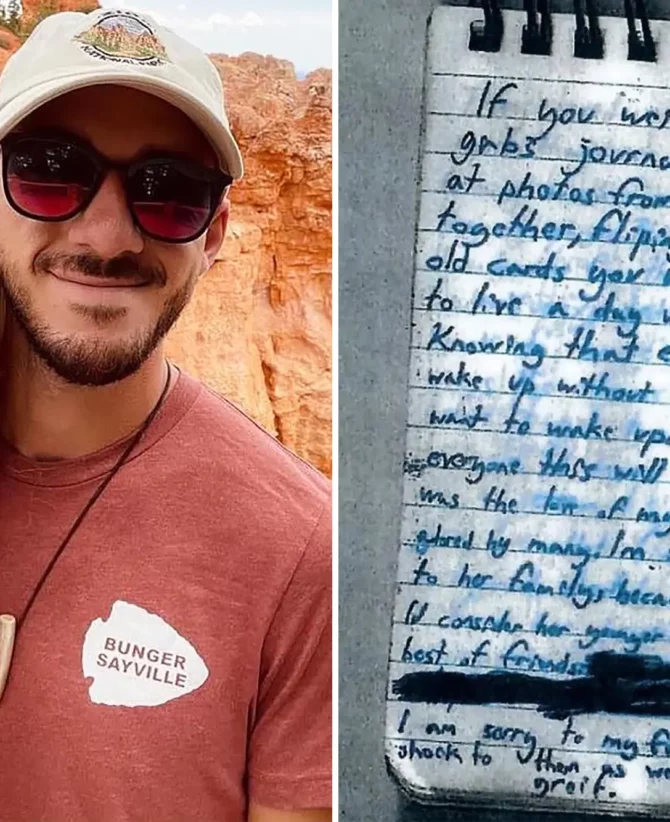 NATIONAL PARK
BUNGER
SAYVILLE
If you wer
gabs journa
at photos from
together, fliping
old cards you
to live a day
Knowing that
wake up without
want to wake up
everyone this will
was the love of my
adored by many. Im
to her familys beca
I'd consider her younger
best of friends
I am sorry to my f
shock to them as we
greif.